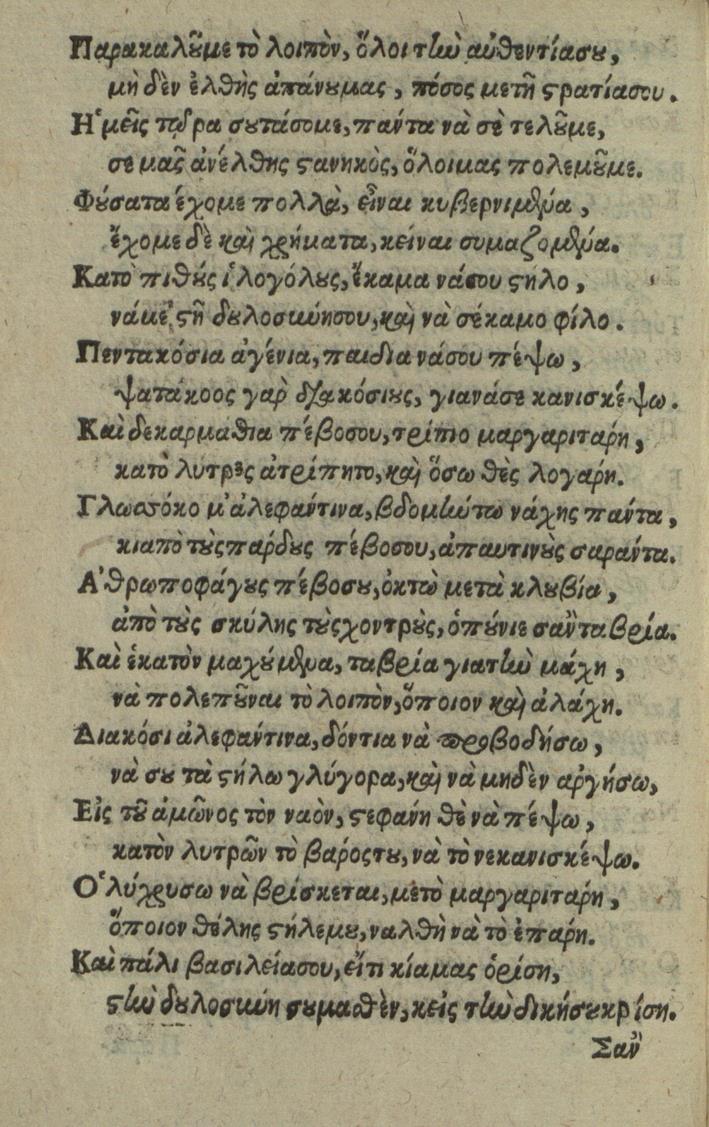 Παρακαλοῦμε τὸ λοιπὸν, ὅλοι τὴν αὐθεντίασου,
μὴ δὲν ἐλθῆς ἀπάνουμας, πόσος μετῆ στρατίασου.
Ἡμεῖς τώρα σουτάσομε, παντα νὰ σὲ τελοῦμε,
σε μᾶς ἀνέλθης στανηκὸς, ὅλοιμας πολεμοῦμε.
Φύσατα έχομε πολλὰ, εἶναι κυβερνιμένα,
ἔχομε δὲ καὶ χρήματα, κείναι συμαζομένα.
Κατὸ πιθοὺς ἱλογόλους, ἔκαμα νάσου στήλο,
νάμε στῆ δουλοσύνησου, καὶ νὰ σέκαμο φίλο.
Πεντακόσια ἀγένια, παιδια νάσου πέψω,
ψατάκοος γαρ διακόσιους, γιανάσε κανισκέψω.
Καὶ δεκαρμαθια πέβοσου, τρίπιο μαργαριτάρη,
κατὸ λύτρες ἀτρίπητο, καὶ ὅσω θὲς λογάρη.
Γλωστόκο μ' ἀλεφάντινα, βδομήντω νάχης πάντα,
κιαπὸ τοὺς πάρδους πέβοσου, ἀπαυτινοὺς σαράντα.
Ἀθρωποφάγους πέβοσου, ὀκτὼ μετὰ κλουβία,
ἀπὸ τοὺς σκύλης τοὺς χοντροὺς, ὁπούνιε σαὔταβρία.
Καὶ ἑκατὸν μαχούμενα, ταβρία γιατὴν μάχη,
νὰ πολεποῦναι τὸ λοιπὸν, ὅποιον καὶ ἀλάχη.
Διακόσι ἀλεφάντινα, δόντια νὰ προβοδήσω,
νὰ σου τὰ στήλω γλύγορα, καὶ νὰ μηδὲν ἀργήσω,
Εἰς τοῦ ἀμῶνος τὸν ναὸν, στεφάνη θὲ νὰ πέψω,
κατὸν λυτρῶν τὸ βαρόςτου, νὰ τὸνεκανισκέψω.
Ὁλύχρυσω νὰ βρίσκεται, μετὸ μαργαριτάρη,
ὅποιον θέλης στήλεμου, ναλθὴ νὰ τὸ ἐπαρη.
Καὶ πάλι βασιλείασου, εἴτι κίαμας ὁρίση,
στὴν δουλοσύνη σουμαθὲν, κεἰς τὴν δικήσουκρίση.
Σαὔ